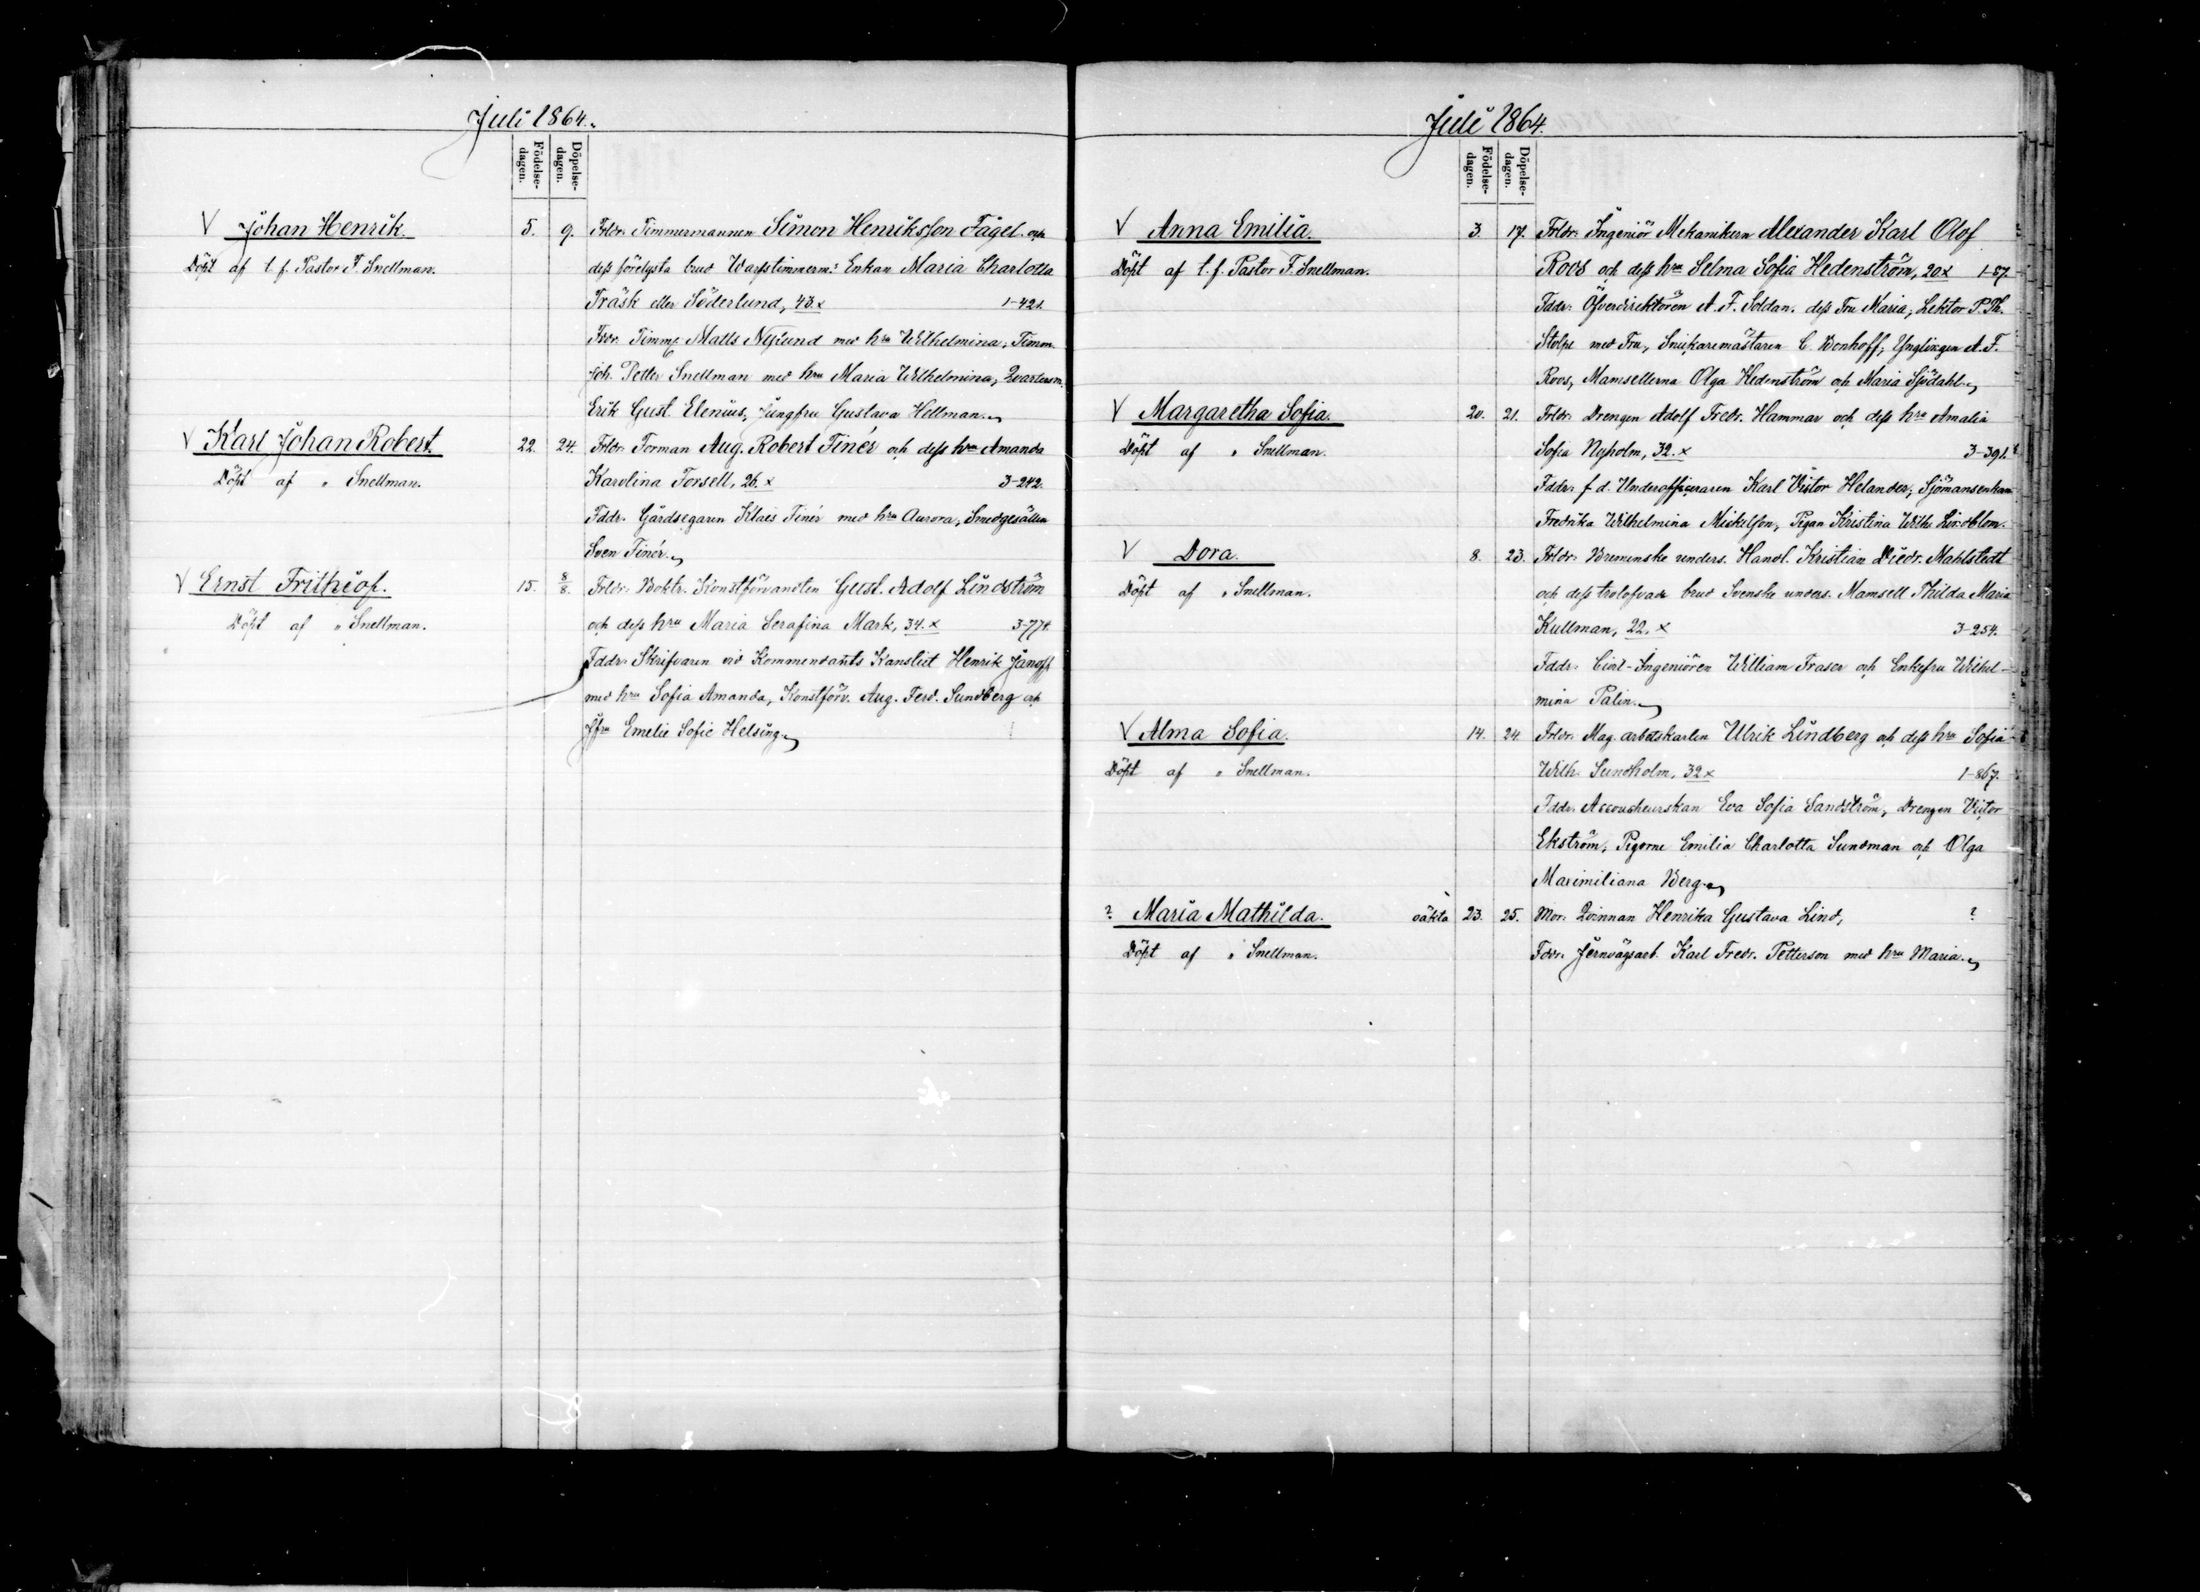 Juli 1864.
Födelse-dagen.
Döpelse-dagen.
V Johan Henrik. 5. 9. Frldr. Timmermannen Simon Henriksson Fågel och
Döpt af t. f. Pastor F. Snellman. dess förelysta brud Warfstimmerm: Enkan Maria Charlotta
Träsk eller Söderlund, 43. x 1-421.
Fddr. Timm. Matts Nylund med hru Wilhelmina, Timm.
Joh. Petter Snellman med hru Maria Wilhelmina, Qvarterm.
Erik Gust. Elenius, Jungfru Gustava Hellman.
V Karl Johan Robert. 22. 24. Frldr. Forman Aug. Robert Finér och dess hru Amanda
Döpt af " Snellman. Karolina Forsell, 26. x 3-242.
Fddr. Gårdsegaren Klaes Finér med hru Aurora, Smedgesällen
Sven Finér.
V Ernst Frithiof. 15. 8/8. Frldr. Boktr. Konstförvandten Gust. Adolf Lindström
Döpt af " Snellman. och dess hru Maria Serafina Mark, 34. x 3-774.
Fddr. Skrifvaren vid Kommendants Kansliet Henrik Janoff
med hru Sofia Amanda, Konstförv. Aug. Ferd. Sundberg och
Jfru Emelie Sofie Helsing.
Juli 1864.
Födelse-dagen.
Döpelse-dagen.
V Anna Emilia. 3. 17. Frldr. Ingeniör Mekanikern Alexander Karl Olof
Döpt af t. f. Pastor F. Snellman. Roos och dess hru Selma Sofia Hedenström, 20 x 1-87.
Fddr. Öfverdirektören A. F. Soldan, dess Fru Maria, Lektor P. Th.
Stolpe med Fru, Snickaremästaren C. Bonhoff, Ynglingen A. F.
Roos, Mamsellerna Olga Hedenström och Maria Sjödahl.
V Margaretha Sofia. 20. 21. Frldr. Drengen Adolf Fredr. Hammar och dess hru Amalia
Döpt af " Snellman. Sofia Nyholm, 32. x 3-391.
Fddr. f d. Underofficeraren Karl Victor Helander, Sjömansenkan
Fredrika Wilhelmina Mickelsson, Pigan Kristina Wilh. Lindblom.
V Dora. 8. 23. Frldr. Bremenske unders. Handl. Kristian Diedr. Mahlstedt
Döpt af " Snellman. och dess trolofvade brud Svenske unders. Mamsell Thilda Maria
Kullman, 22. x 3-254.
Fddr. Civil-Ingeniören William Fraser och Enkefru Wilhel-
mina Palin.
V Alma Sofia. 14. 24. Frldr. Mag. arbetskarlen Ulrik Lindberg och dess hru Sofia
Döpt af " Snellman. Wilh. Sundholm, 32 x 1-867.
Fddr. Accoucheurskan Eva Sofia Sandström, Drengen Victor
Ekström, Pigorne Emilia Charlotta Sundman och Olga
Maximiliana Berg.
? Maria Mathilda. oäkta 23. 25. Mor: Qvinnan Henrika Gustava Lind, ?
Döpt af " Snellman. Fddr. Jernvägsarb. Karl Fredr. Petterson med hru Maria.